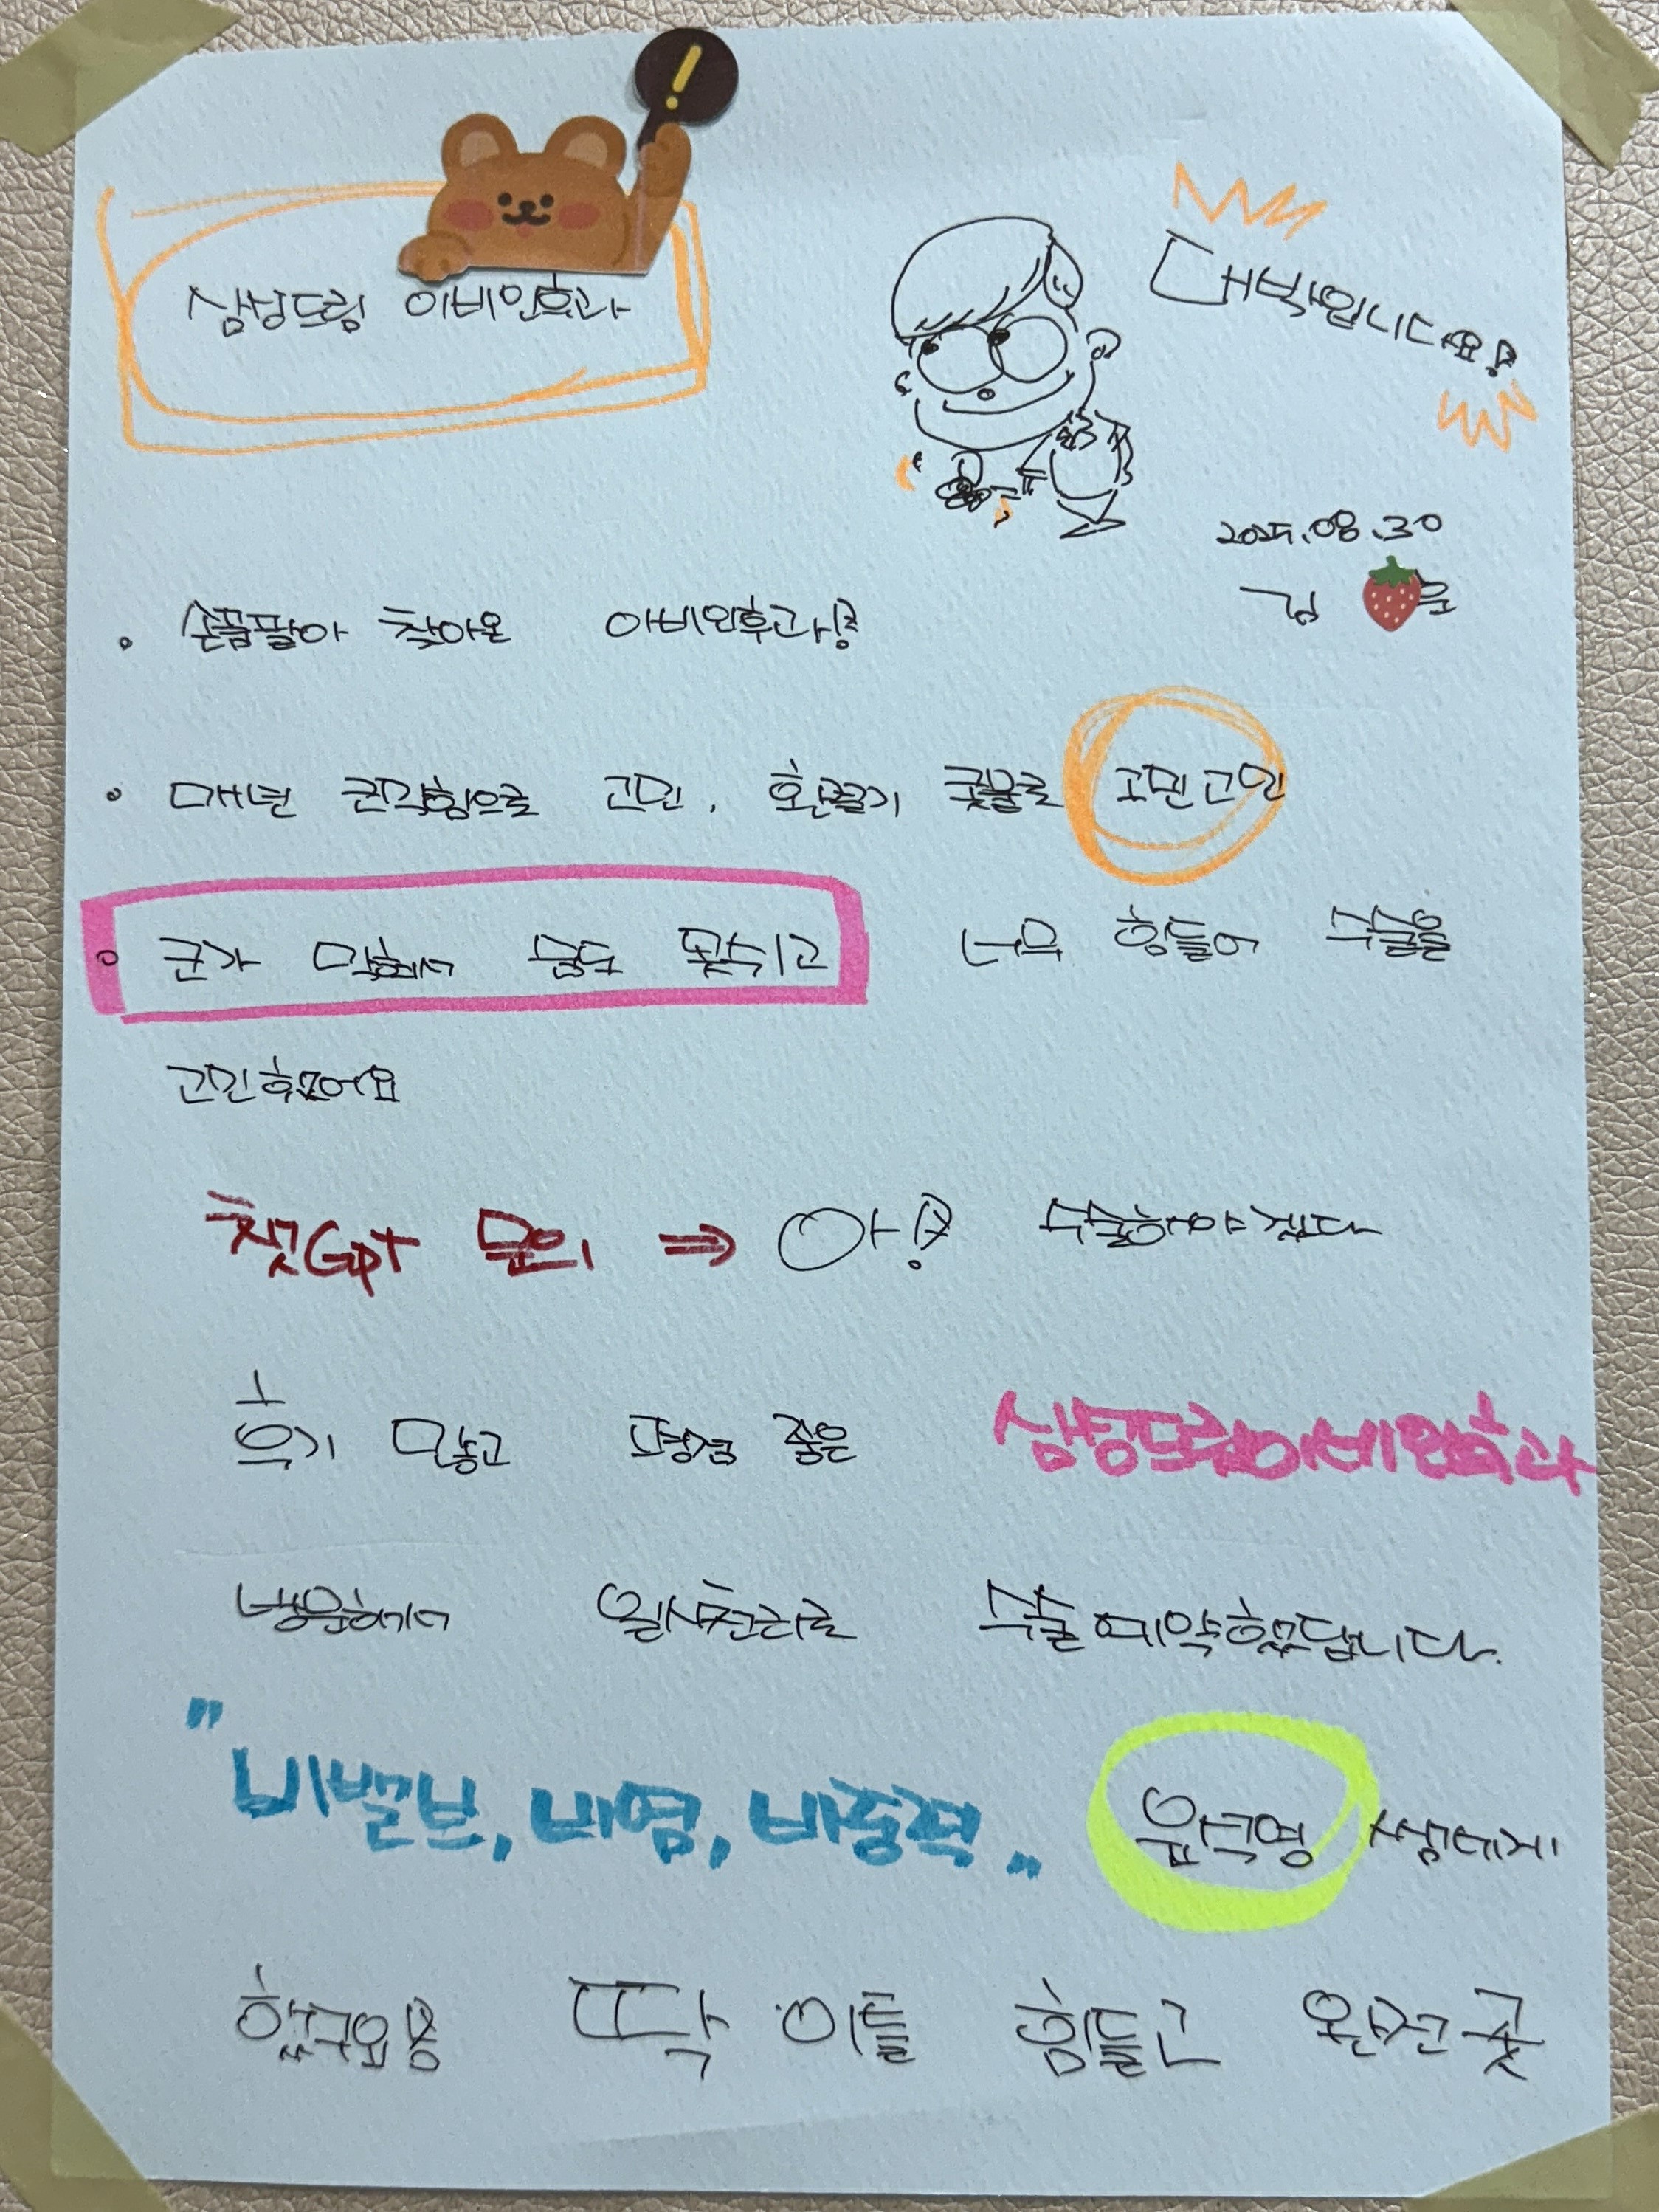 !
삼성드림 이비인후과
대박입니다요!
2025.08.30
김
손품팔아 찾아온 이비인후과!
매년 코막힘으로 고민, 환절기 콧물로 고민고민
코가 막혀서 숨도 못쉬고 너무 힘들어 수술을
고민했어요
챗GPT 문의 ⇒ 아! 수술해야겠다
후기 많고 평점 좋은 삼성드림이비인후과
방문해서 일사천리로 수술예약했답니다.
"비밸브, 비염, 비중격" 쌤에게
했구요옹 딱 이틀 힘들고 완전굿